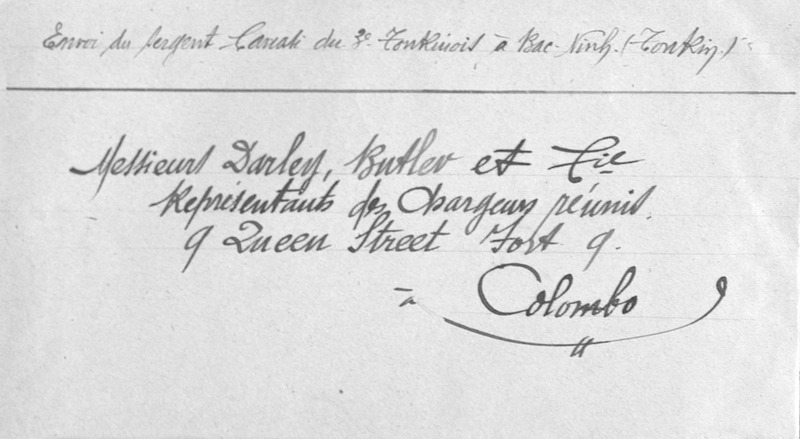 Envoi du Sergent Cancali du 3e Tonkinois à Bac-Ninh (Tonkin)
Messieurs Darley, Butler et Cie
Représentants des Chargeurs réunis.
9 Queen Street Fort 9.
à Colombo